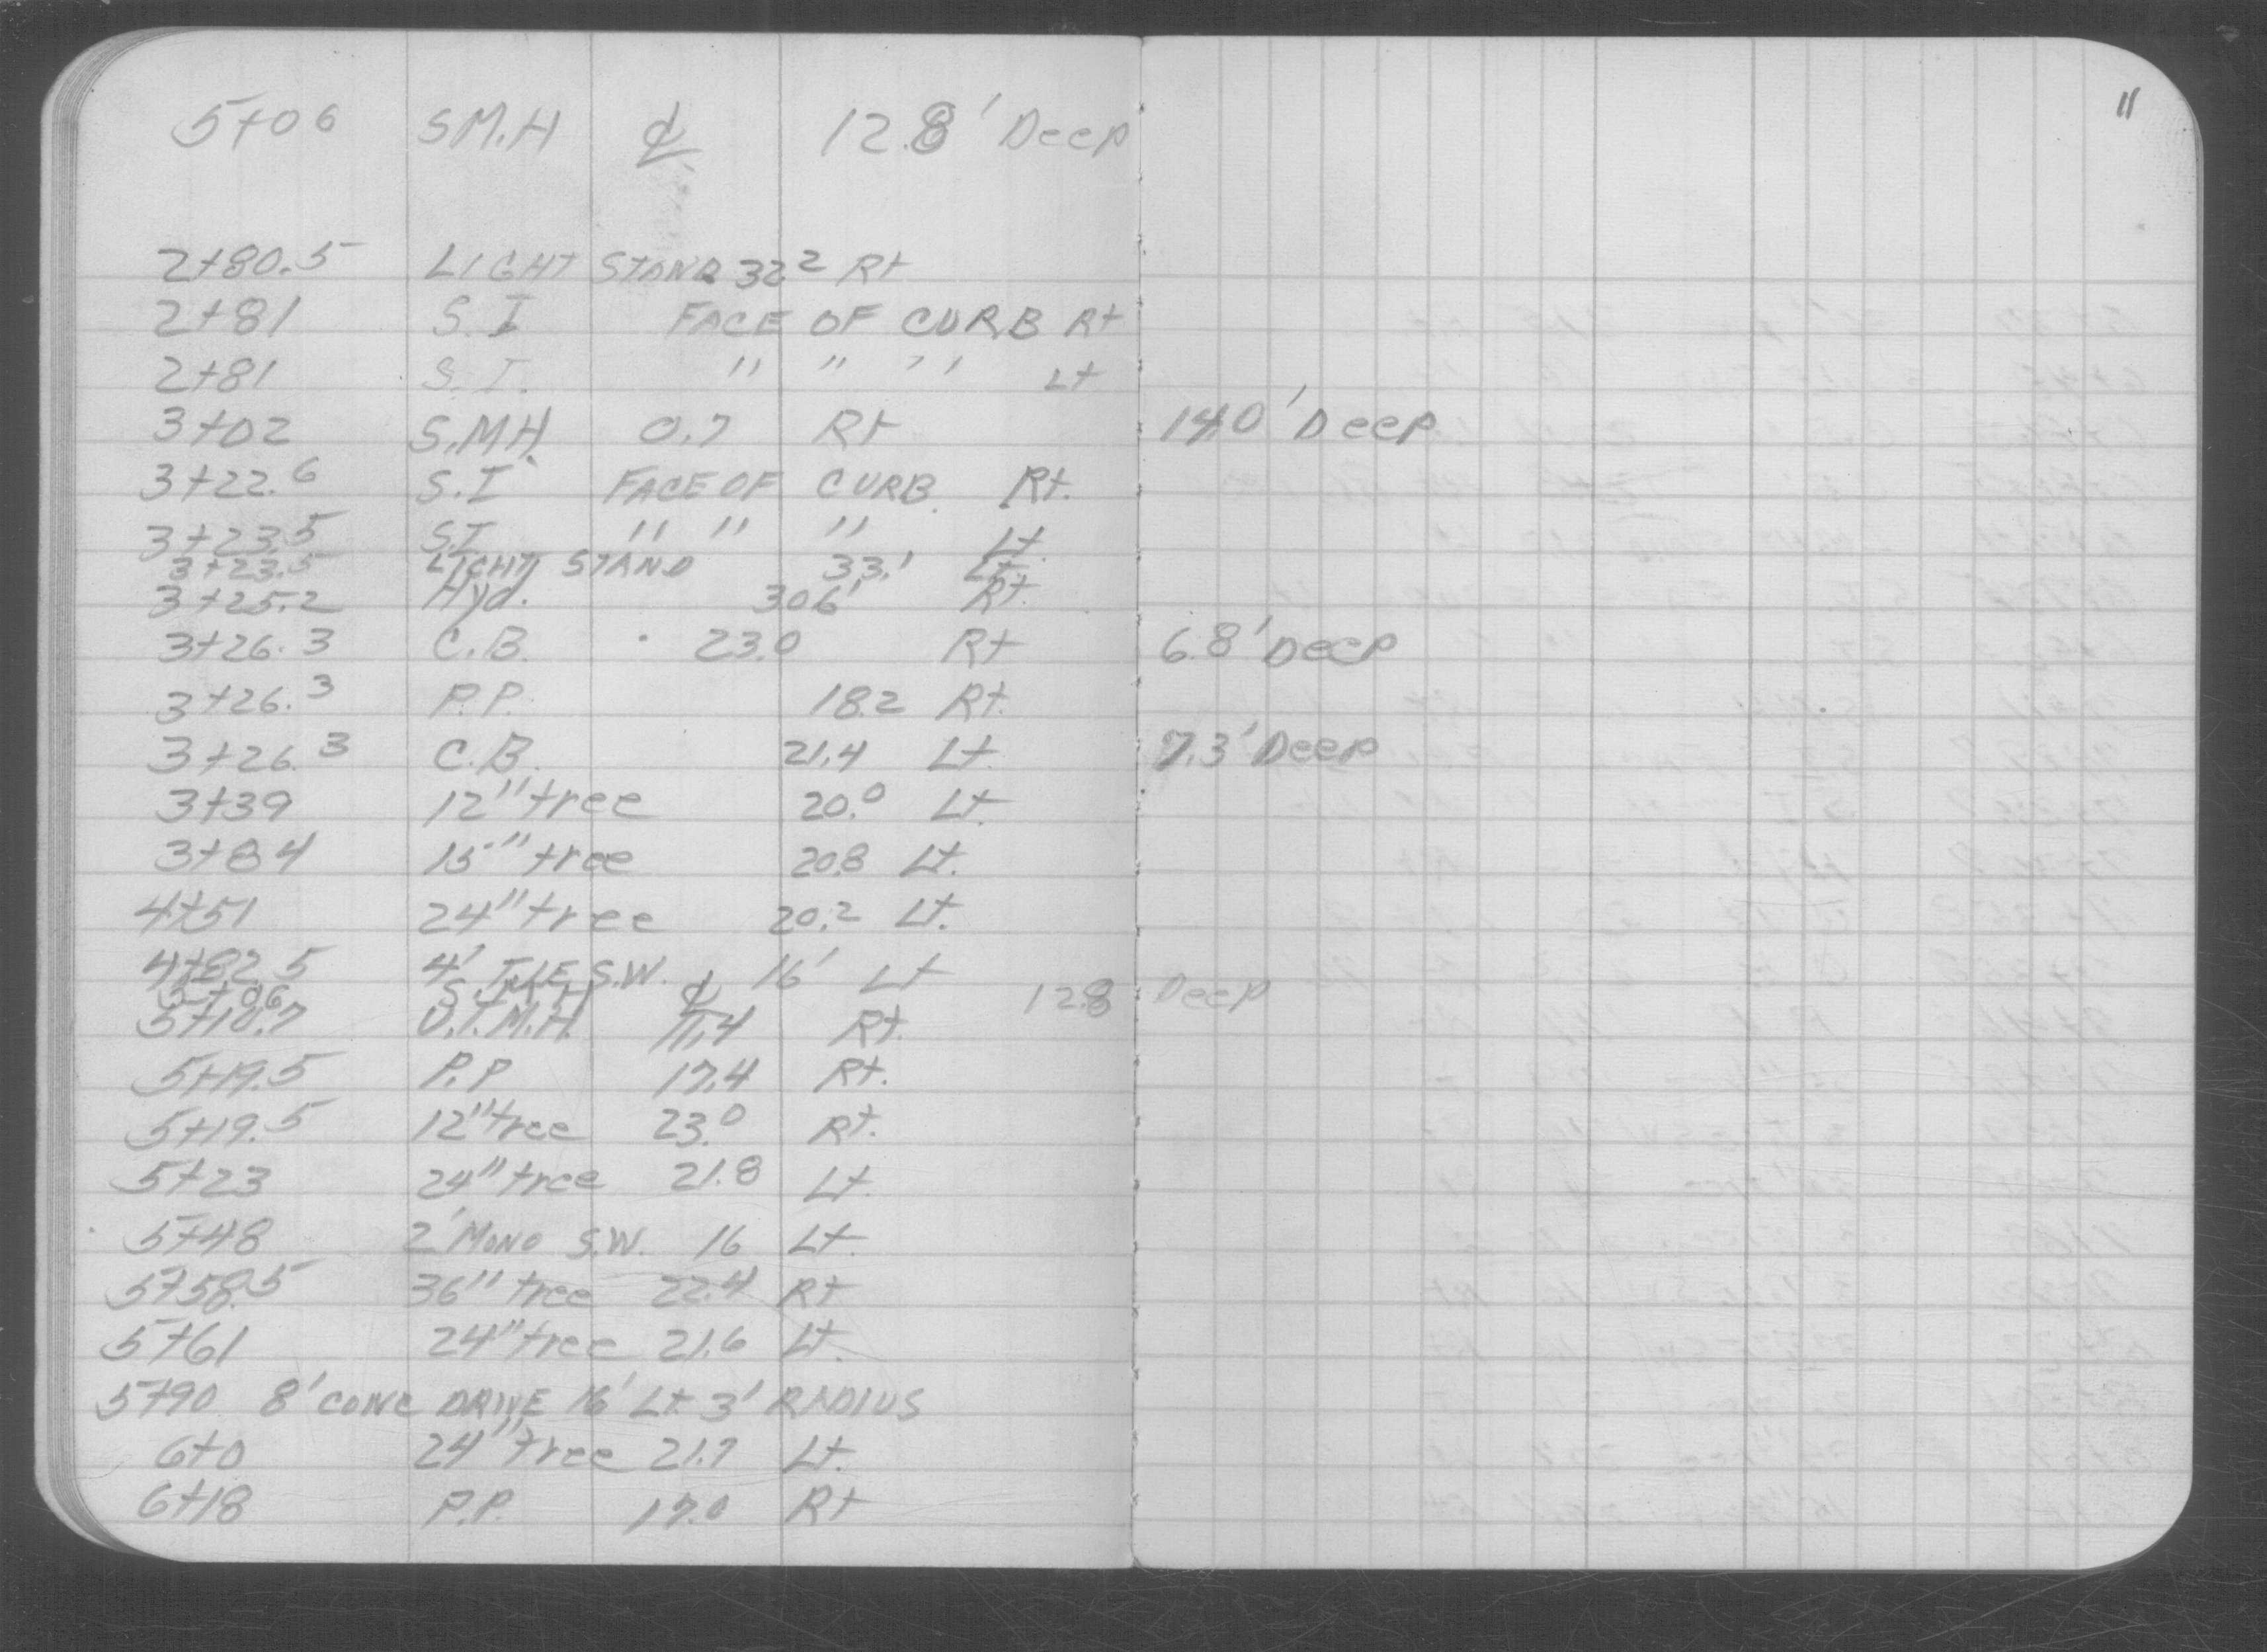 11
5+06 S.M.H ℄ 12.8' Deep
2+80.5 LIGHT STAND 32.2 Rt
2+81 S.I FACE OF CURB Rt
2+81 S.I. " " " Lt
3+02 S.M.H. 0.7 Rt 14.0' Deep
3+22.6 S.I FACE OF CURB. Rt.
3+23.5 S.I " " " Lt.
3+23.5 LIGHT STAND 33.' Lt.
3+25.2 Hyd. 30.6' Rt.
3+26.3 C.B. 23.0 Rt 6.8' Deep
3+26.3 P.P. 18.2 Rt.
3+26.3 C.B. 21.4 Lt. 7.3' Deep
3+39 12" tree 20.0 Lt.
3+84 15" tree 20.8 Lt.
4+51 24" tree 20.2 Lt.
4+82.5 4' TILE S.W. 16' Lt
5+06 S.M.H ℄ 12.8 Deep
5+10.7 U.T.M.H. 11.4 Rt.
5+19.5 P.P 17.4 Rt.
5+19.5 12" tree 23.0 Rt.
5+23 24" tree 21.8 Lt.
5+48 2' MONO S.W. 16 Lt.
5+58.5 36" tree 22.4 Rt
5+61 24" tree 21.6 Lt.
5+90 8' CONC DRIVE 16' Lt. 3' RADIUS
6+0 24" tree 21.7 Lt.
6+18 P.P. 17.0 Rt